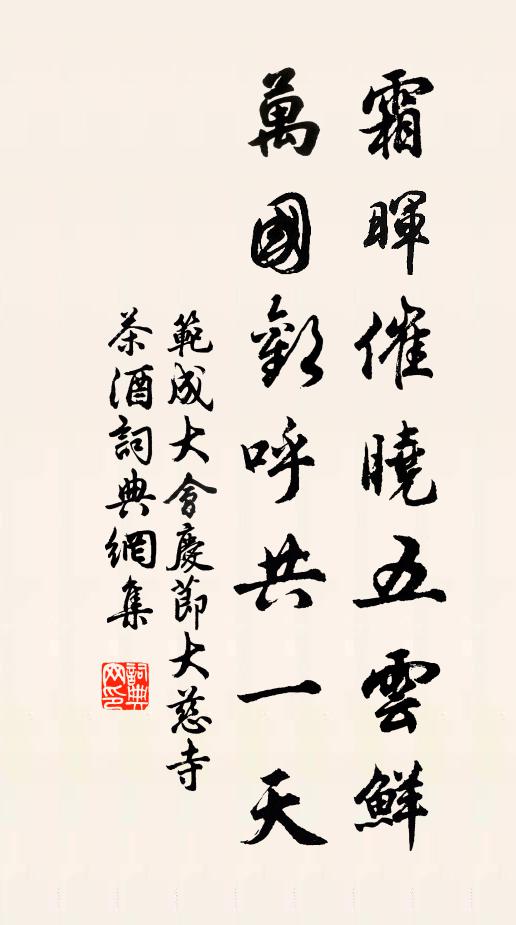 霜暉催曉五雲鮮
萬國歡呼共一天
範成大會慶節大慈寺
茶酒詞典網集
詞典網印